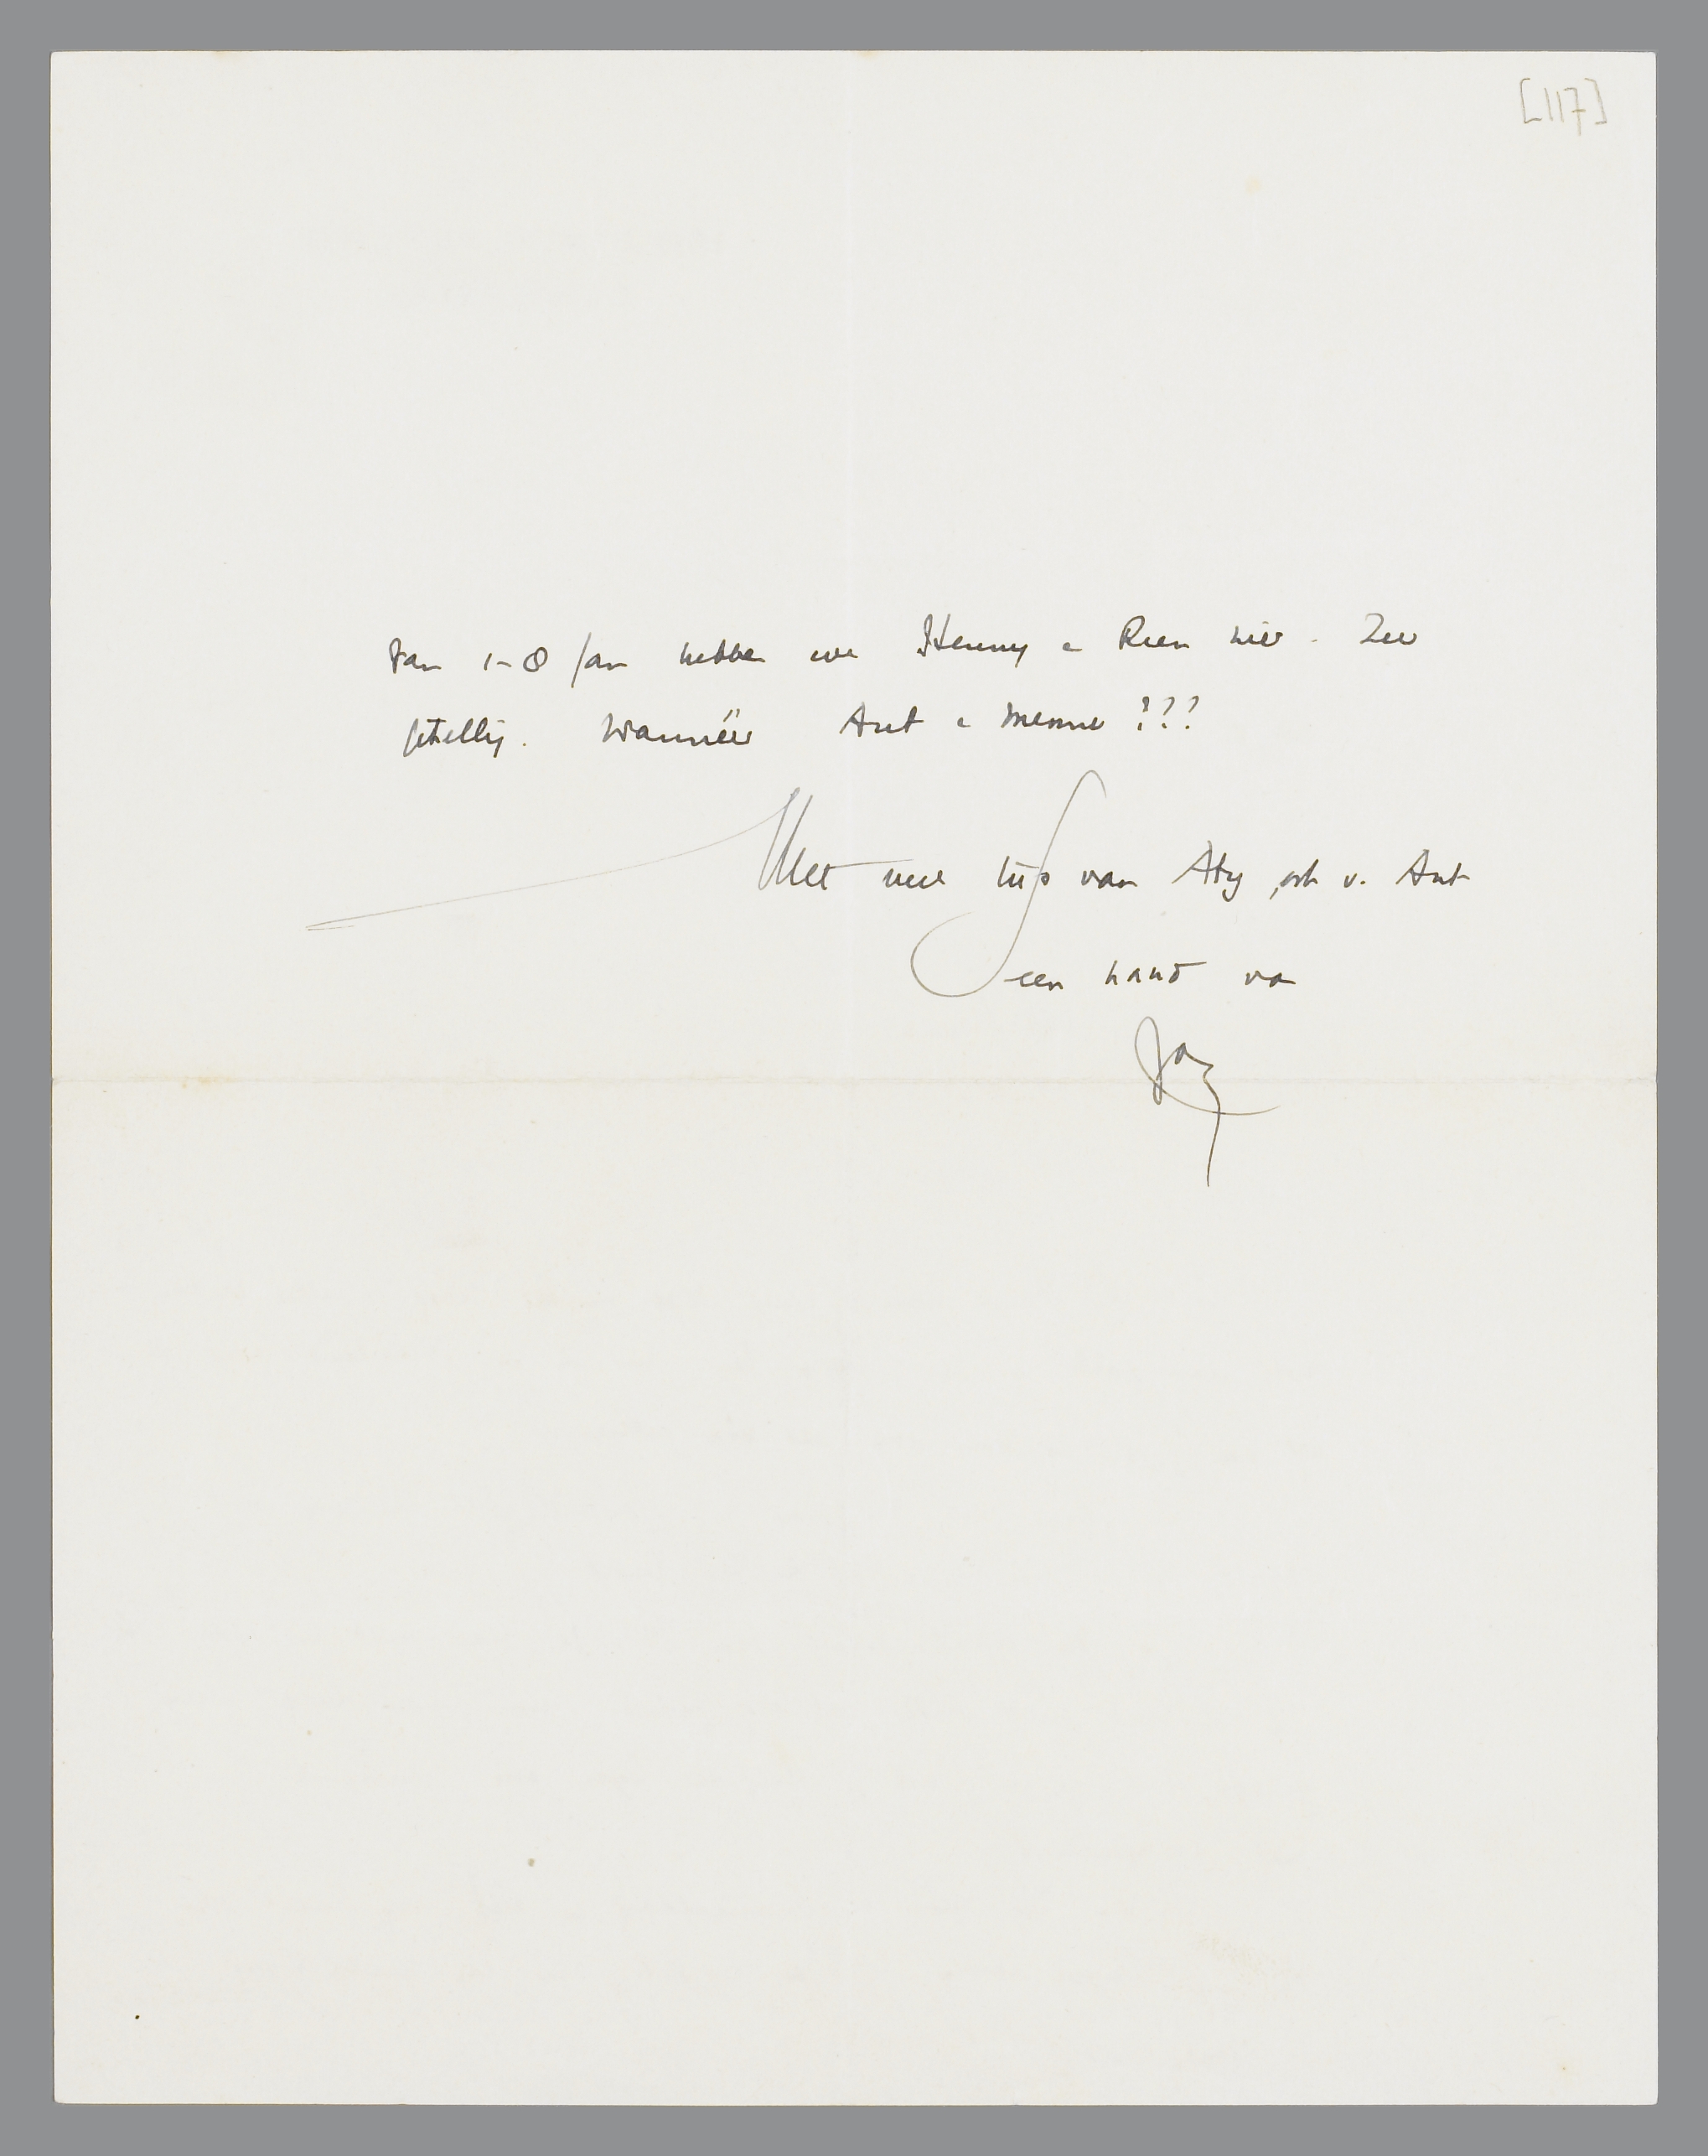 [117]
Van 1-8 Jan hebben we Henny e Rien hier. Zeer
gezellig. Wanneer Ant e Menno ???
Met veel liefs van Atty, ook v. Ant
een hand van